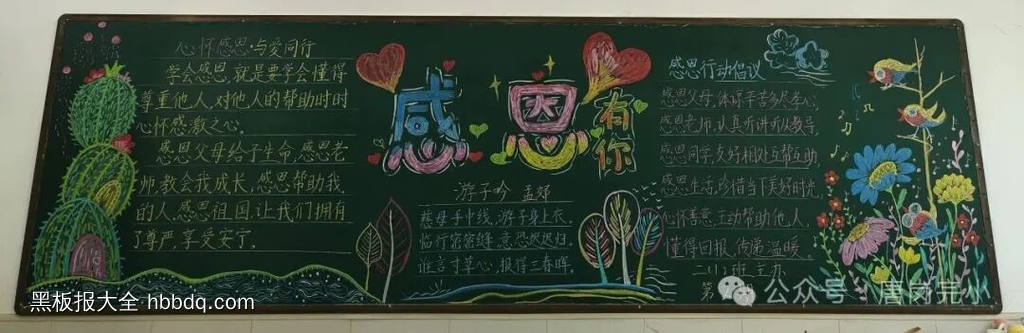 心怀感恩·与爱同行
学会感恩,就是要学会懂得
尊重他人,对他人的帮助时时
心怀感激之心。
感恩父母给予生命,感恩老
师,教会我成长,感恩帮助我
的人,感恩祖国,让我们拥有
了尊严,享受安宁。
感恩
有你
游子吟 孟郊
慈母手中线,游子身上衣。
临行密密缝,意恐迟迟归。
谁言寸草心,报得三春晖。
感恩行动倡议
感恩父母,体谅辛苦多尽孝心,
感恩老师,认真听讲听从教导,
感恩同学,友好相处互帮互助
感恩生活,珍惜当下美好时光
心怀善意,主动帮助他人,
懂得回报,传递温暖。
二(1)班 主办
第
黑板报大全 hbbdq.com
公众号:唐岗完小